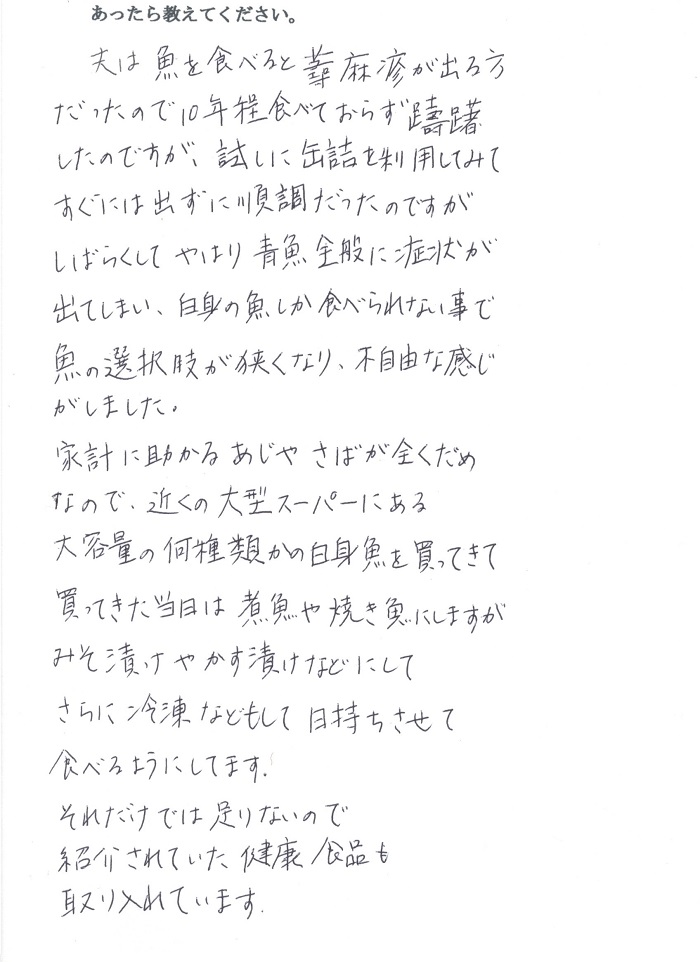 あったら教えてください。
夫は魚を食べると蕁麻疹が出る方
だったので10年程食べておらず躊躇
したのですが、試しに缶詰を利用してみて
すぐには出ずに順調だったのですが
しばらくしてやはり青魚全般に症状が
出てしまい、白身の魚しか食べられない事で
魚の選択肢が狭くなり、不自由な感じ
がしました。
家計に助かるあじやさばが全くだめ
なので、近くの大型スーパーにある
大容量の何種類かの白身魚を買ってきて
買ってきた当日は煮魚や焼き魚にしますが
みそ漬けやかす漬けなどにして
さらに冷凍などもして日持ちさせて
食べるようにしてます.
それだけでは足りないので
紹介されていた健康食品も
取り入れています.